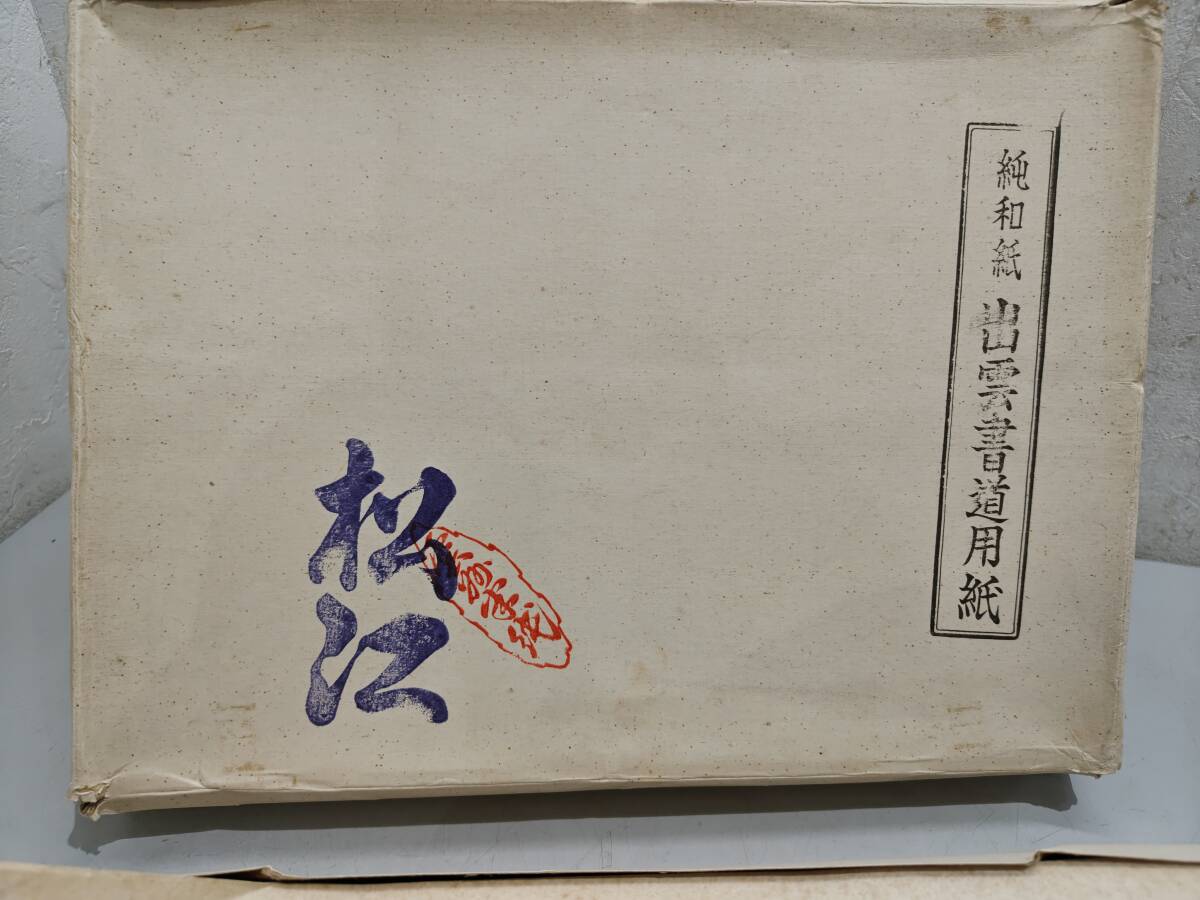 純和紙 出雲書道用紙
松江